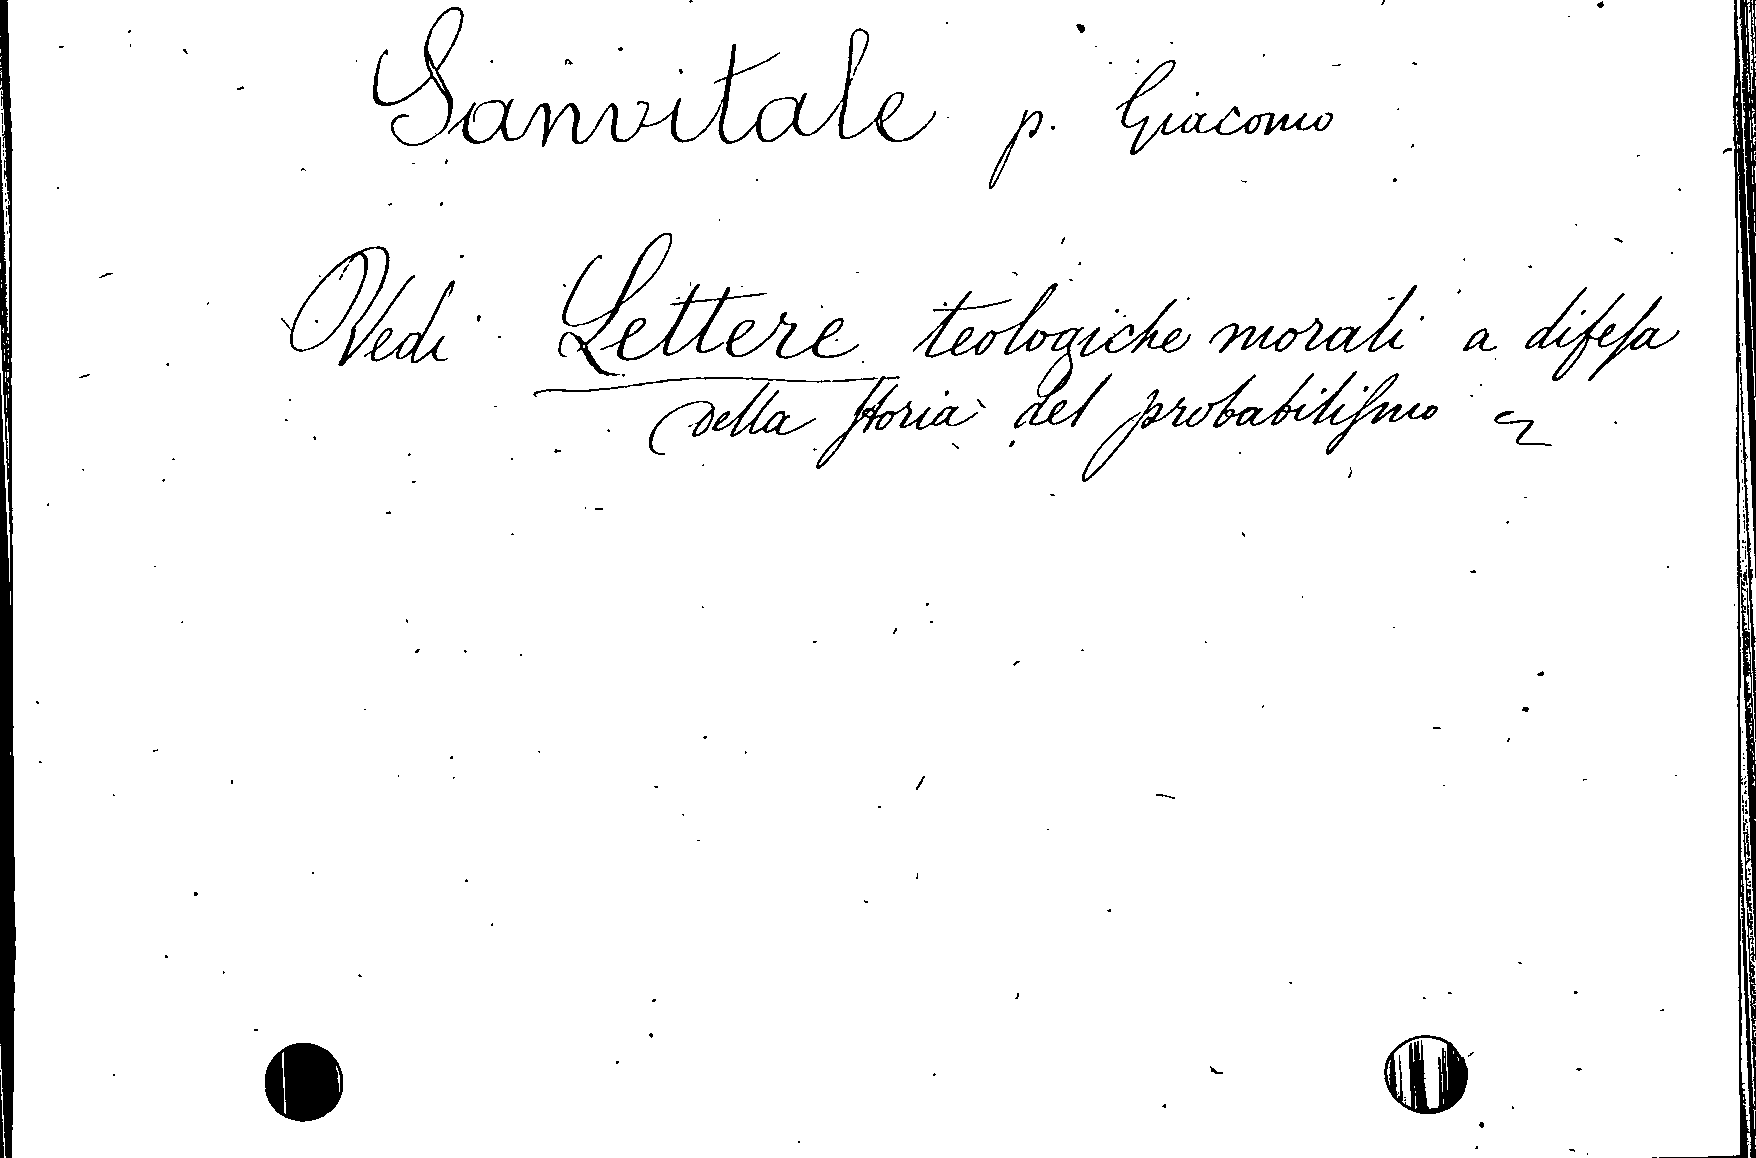 Sanvitale p. Giacomo
Vedi Lettere teologiche morali a difeſa
della ſtoria del probabiliſmo